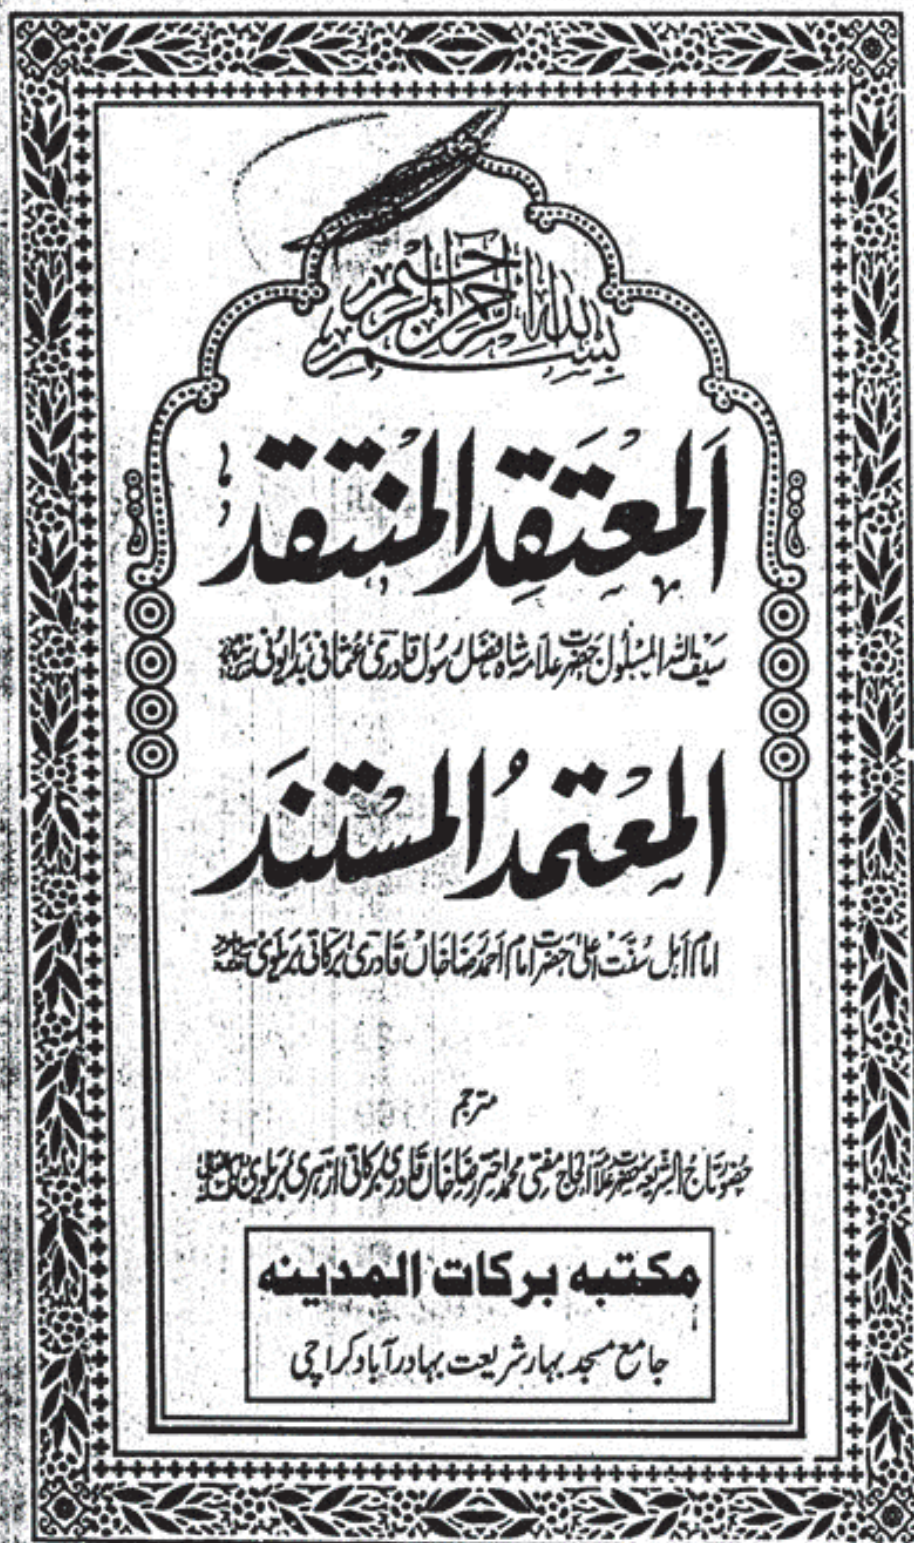 بسم الله الرحمن الرحيم
اَلمُعْتَقَدُ المُنْتَقَد
سیف اللہ المسلول حضرت علامہ شاہ فضل رسول قادری عثمانی بدایونی
المُعْتَمَدُ المُسْتَنَد
امام اہل سنت اعلیٰ حضرت امام احمد رضا خاں قادری برکاتی بریلوی
مترجم
حضور تاج الشریعہ حضرت علامہ الحاج مفتی محمد اختر رضا خاں قادری برکاتی ازہری بریلوی
مکتبہ برکات المدینہ
جامع مسجد بہار شریعت بہادر آباد کراچی